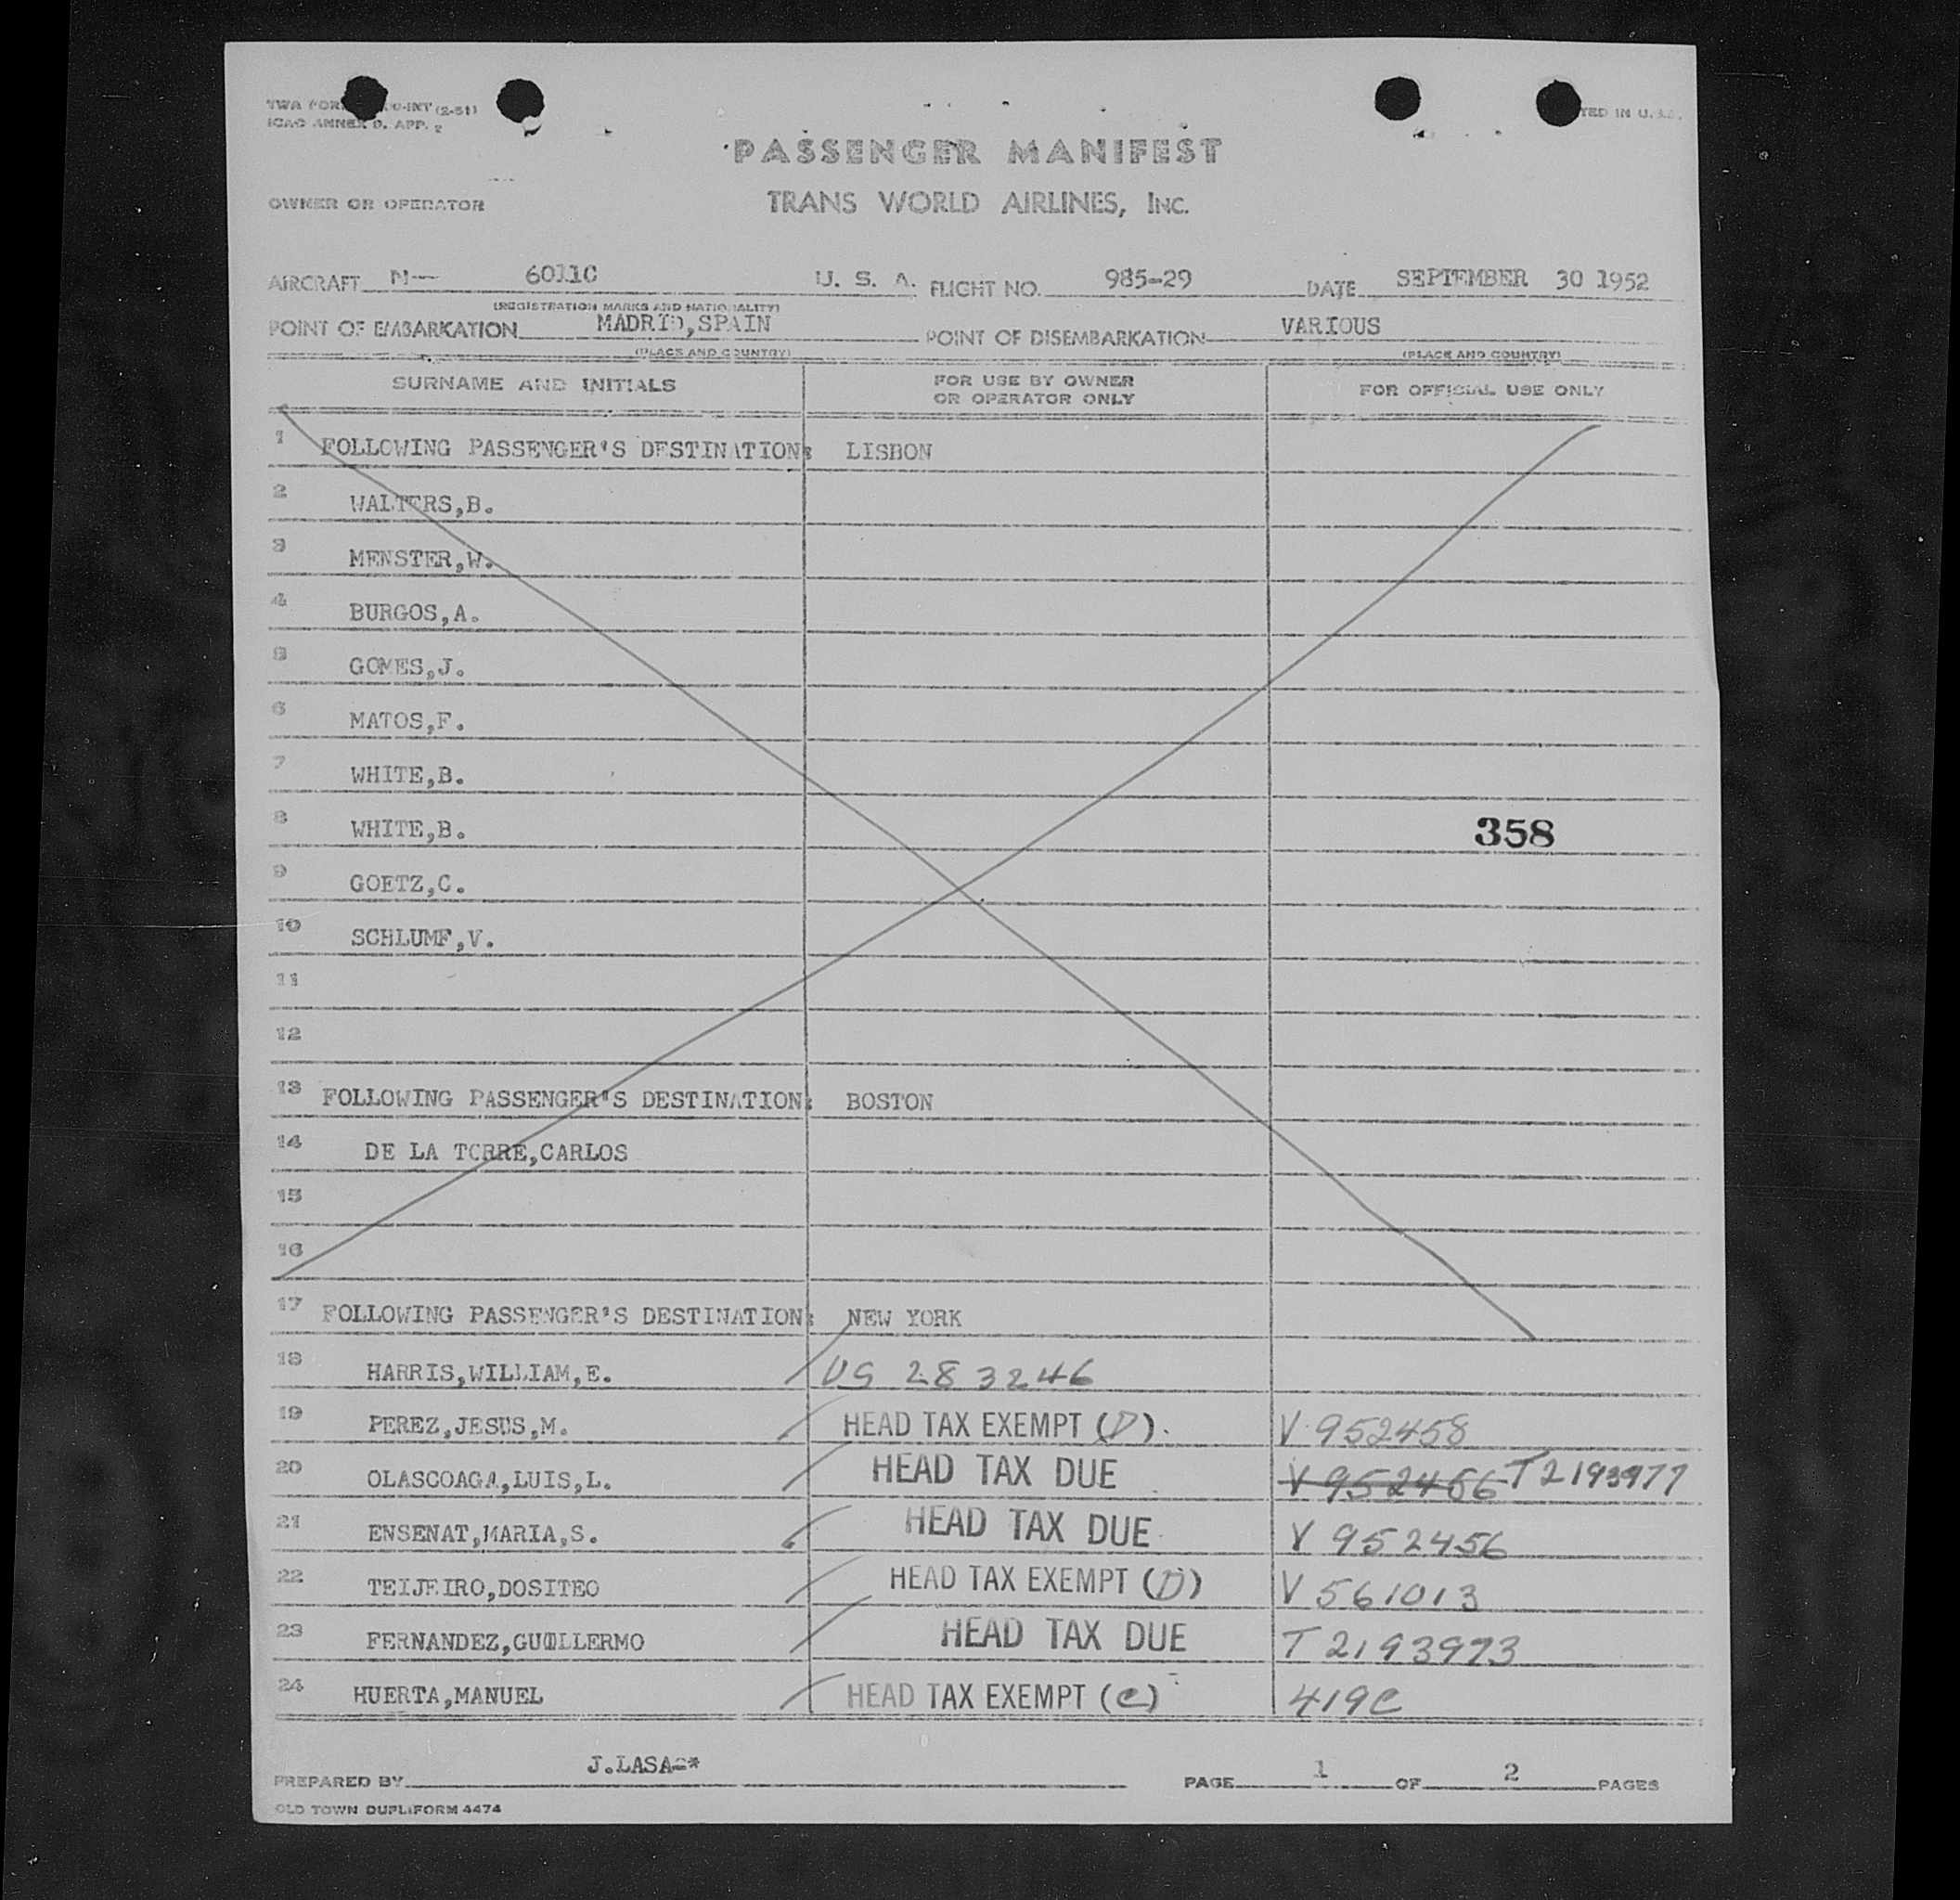 (2-51)
ICAO ANNEX 9. APP. 2
PASSENGER MANIFEST
OWNER OR OPERATOR
TRANS WORLD AIRLINES, INC.
AIRCRAFT N— 6011C U. S. A. FLIGHT NO. 985-29 DATE SEPTEMBER 30 1952
(REGISTRATION MARKS AND NATIONALITY)
POINT OF EMBARKATION MADRID,SPAIN POINT OF DISEMBARKATION VARIOUS
(PLACE AND COUNTRY) (PLACE AND COUNTRY)
SURNAME AND INITIALS FOR USE BY OWNER OR OPERATOR ONLY FOR OFFICIAL USE ONLY
1 FOLLOWING PASSENGER'S DESTINATION: LISBON
2 WALTERS,B.
3 MENSTER,W.
4 BURGOS,A.
5 GOMES,J.
6 MATOS,F.
7 WHITE,B.
8 WHITE,B. 358
9 GOETZ,C.
10 SCHLUMF,V.
11
12
13 FOLLOWING PASSENGER'S DESTINATION: BOSTON
14 DE LA TORRE,CARLOS
15
16
17 FOLLOWING PASSENGER'S DESTINATION: NEW YORK
18 HARRIS,WILLIAM,E. US 283246
19 PEREZ,JESUS,M. HEAD TAX EXEMPT (D). V 952458
20 OLASCOAGA,LUIS,L. HEAD TAX DUE V 952456 T2193977
21 ENSENAT,MARIA,S. HEAD TAX DUE V 952456
22 TEIJEIRO,DOSITEO HEAD TAX EXEMPT (D) V 561013
23 FERNANDEZ,GUILLERMO HEAD TAX DUE T 2193973
24 HUERTA,MANUEL HEAD TAX EXEMPT (C) 419C
PREPARED BY J.LASA-* PAGE 1 OF 2 PAGES
OLD TOWN DUPLIFORM 4474